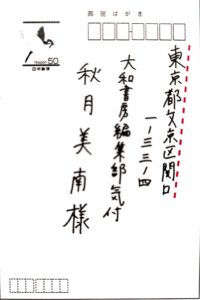 郵便はがき
NIPPON 50
日本郵便
東京都文京区関口
一ー三三ー四
大和書房編集部気付
秋月美南様